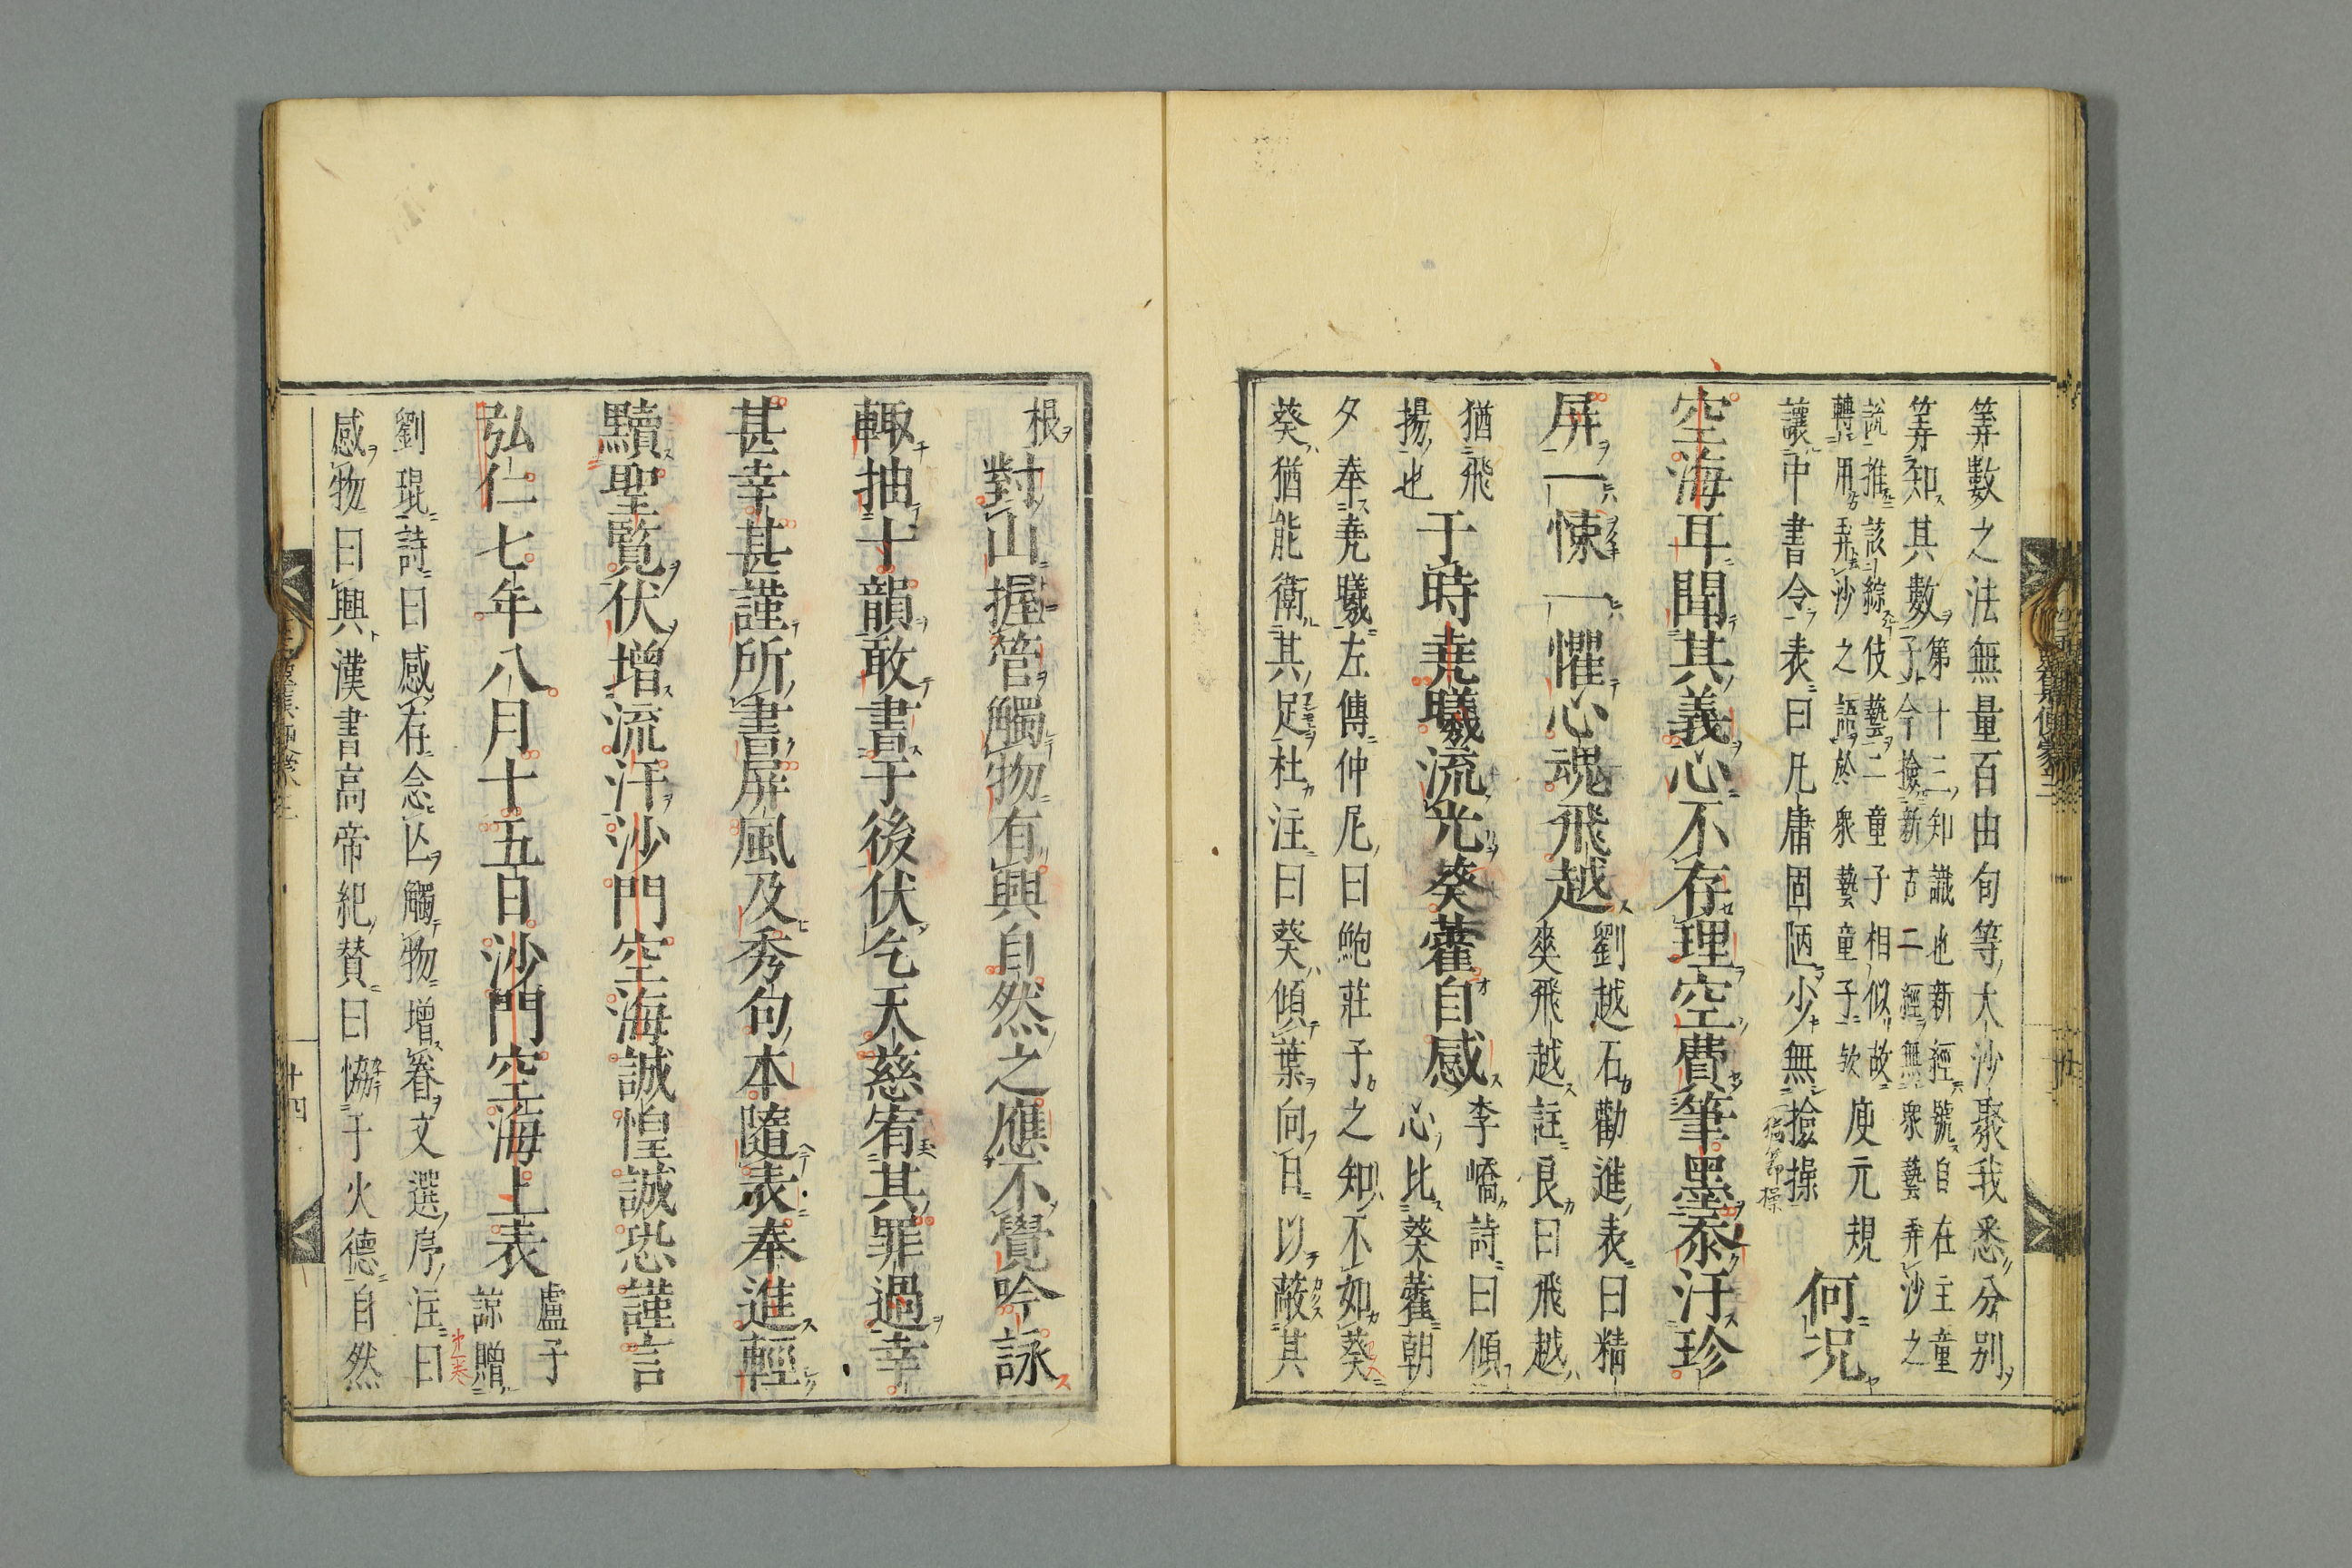 等數之法無量百由旬等大沙聚我悉分別
筭知其數
第十三知識也新經號自在主童
子今撿新古二經無衆藝弄沙之
說推該綜伎藝二童子相似故
轉用弄沙之語於衆藝童子欤
庾元規
讓中書令表曰凡庸固陋少無撿操
何况
空海耳聞其義心不存理空費筆墨泰汙珍
屏一悚一懼心魂飛越
劉越石勸進表曰精
爽飛越註良曰飛越
猶飛
揚也
于時堯曦流光葵藿自感
李嶠詩曰傾
心比葵藿朝
夕奉堯曦左傳仲尼曰鮑莊子之知不如葵
葵猶能衛其足杜注曰葵傾葉向日以蔽其
根
對山握管觸物有興自然之應不覺吟詠
輙抽十韻敢書于後伏乞天慈宥其罪過幸
甚幸甚謹所書屏風及秀句本隨表奉進輕
黷聖覽伏增流汗沙門空海誠惶誠恐謹言
弘仁七年八月十五日沙門空海上表
盧子
諒贈
劉琨詩曰感存念亾觸物增眷文選序注曰
感物曰興漢書高帝紀賛曰恊于火德自然
十四